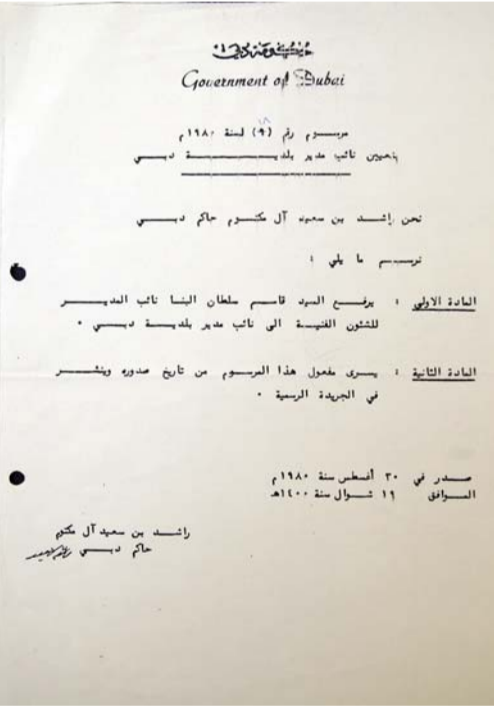 حكومة دبي
Government of Dubai
مرسوم رقم (٩) لسنة ١٩٨٠م
بتعيين نائب مدير بلديــة دبــي
نحن راشد بن سعيد آل مكتوم حاكم دبــي
نرسم ما يلي :
المادة الاولى : يرفع السيد قاسم سلطان البنا نائب المديــر
للشئون الفنية الى نائب مدير بلدية دبــي .
المادة الثانية : يسرى مفعول هذا المرسوم من تاريخ صدوره وينشــر
في الجريدة الرسمية .
صــدر في ٣٠ أغسطس سنة ١٩٨٠م
الموافق ١٩ شوال سنة ١٤٠٠هـ
راشد بن سعيد آل مكتوم
حاكم دبــي